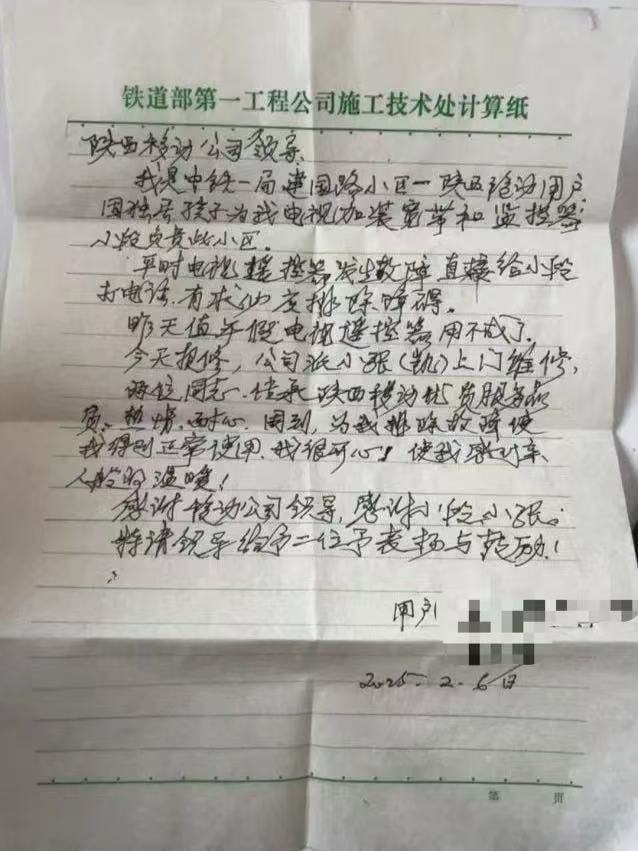 铁道部第一工程公司施工技术处计算纸
陕西移动公司领导:
我是中铁一局建国路小区一陕西移动用户
因独居孩子为我电视加装宽带和监控器
小段负责此小区。
平时电视遥控器发生故障直接给小段
打电话.有求必应排除障碍。
昨天值年假电视遥控器用不成了.
今天报修,公司派小张(凯)上门维修,
两位同志.传承陕西移动优质服务品
质、热情、耐心、周到,为我排除故障使
我得到正常使用.我很开心!使我感到亲
人般的温暖!
感谢移动公司领导,感谢小段、小张.
特请领导给予二位予表扬与鼓励!
用户
2025.2.6日
第 页